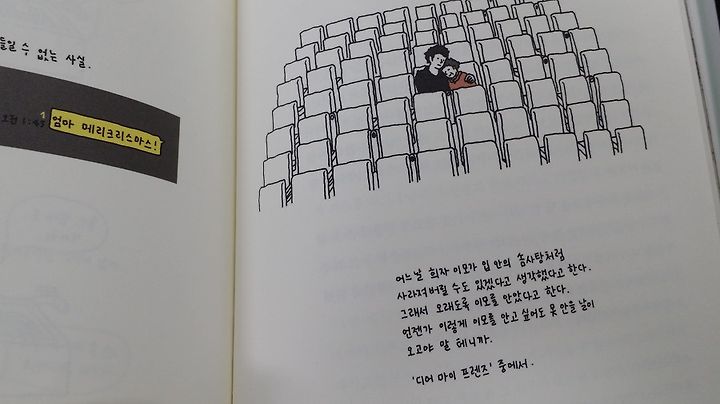 들일 수 없는 사실.
오전 1:43
1
엄마 메리크리스마스!
어느날 희자 이모가 입 안의 솜사탕처럼
사라져버릴 수도 있겠다고 생각했다고 한다.
그래서 오래도록 이모를 안았다고 한다.
언젠가 이렇게 이모를 안고 싶어도 못 안을 날이
오고야 말 테니까.
'디어 마이 프렌즈' 중에서.